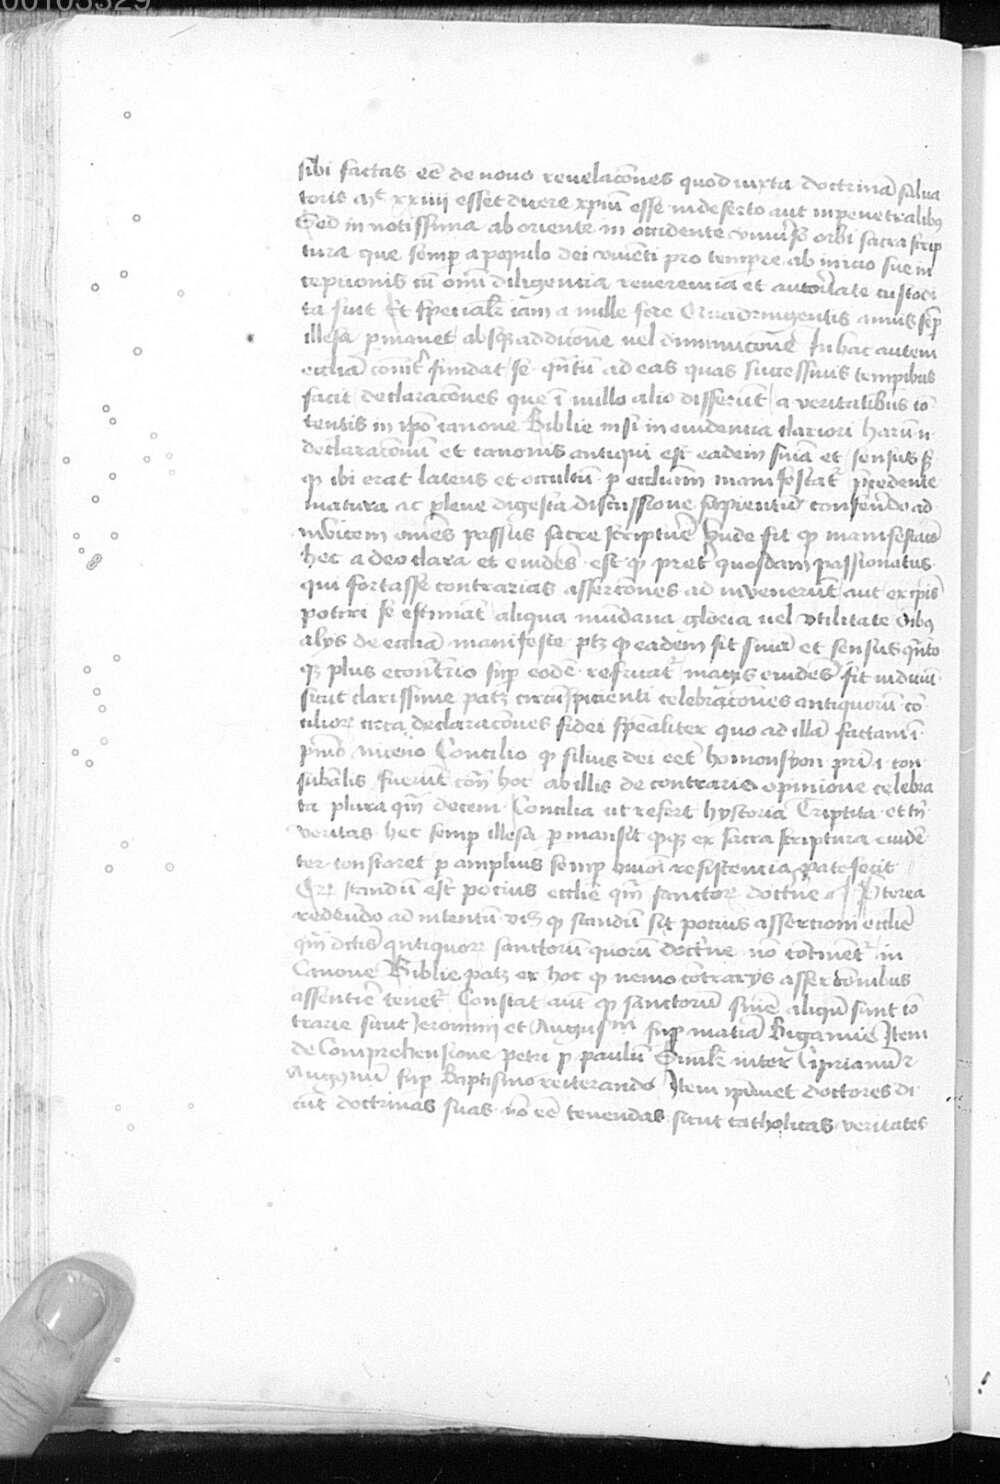 00103329
sibi factas eē de nouo reuelacōnes quod iuxta doctrinā salua
toris mᵗ xxiiii esset dicere xpūm esse in deserto aut in penetralibꝰ
Sed in notissima ab oriente in occidente vniuerso orbi sacra scrip
tura que semp̄ a populo dei viuenti pro tempore ab inicio sue in
cepcionis cū omī diligencia reuerencia et autoritate custodi
ta fuit Et specialr̄ iam a mille fere Quadringentis annis semp̄
illesa pmanet absqꝫ addicōne uel diminucōne In hac autem
eccliā fundat se quātū ad eas quas successiuis tempibus
facit declaracōnes que ī nullo alio differūt a veritatibus cō
tentis in ipō canone Biblie nisi in euidentia clariori harū n
declaracionū et canonis antiqui est eadem snīa et sensus sꝫ
qꝫ ibi erat latens et occultū p eccliam manifestatr̄ precedente
matura ac plene digesta discussione sapientiū conferēdo ad
inuicem omēs passus sacre scripture Vnde fit qꝫ manifestacō
hec adeo clara et euidēs est qꝫ preter quosdam passionatus
qui fortasse contrarias assercōnes adinuenerūt aut ex ipīs
potiri se estimāt aliqua mūdana gloria uel vtilitate oībꝰ
alijs de eccliā manifeste ptꝫ qꝫ eadem sit snīa et sensus quāto
qꝫ plus econtrario supꝫ eodē refricatr̄ magis euidēs fit
sicut clarissime patꝫ circūspicienti celebracōnes antiquorū cō
cilioꝝ circa declaracōnes fidei specialiter quo ad illā factam ī
prīo niceno Concilio qꝫ filius dei eēt homousyon pri i con
substancialis fuerūt hoc ab illis de contraria opinione celebra
ta plura qm̄ decem Concilia ut refert hystoria Triptita et tn̄
veritas hec semp illesa pmansit qꝫ ex sacra scriptura euidē
ter constaret p amplius semp huiōi resistencia patefecit
Ergo standū est pocius ecclie qm̄ sanctoꝝ doctrīe Preterea
redeundo ad intentū qꝫ standū sit pocius assercioni ecclie
qm̄ dictis antiquoꝝ sanctorū quorū doctrīe nō cōtinentr̄ in
Canone Biblie patꝫ ex hoc qꝫ nemo cōtrarijs assercōnibus
assentire tenetr̄ Constat aūt qꝫ sanctorū snīe aliquā sunt cō
trarie sicut Jeronimi et Augustini sup matiā Bigamie Item
de Comprehensione petri p paulū Similr̄ inter Ciprianū et
Augustinū sup Baptismo reiterando Item ipimet doctores di
cūt doctrinas suas nō eē tenendas sicut catholicas veritates